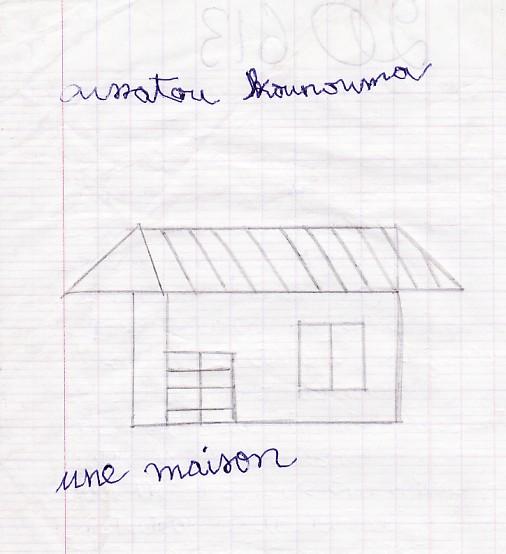 aissatou kounouma
une maison